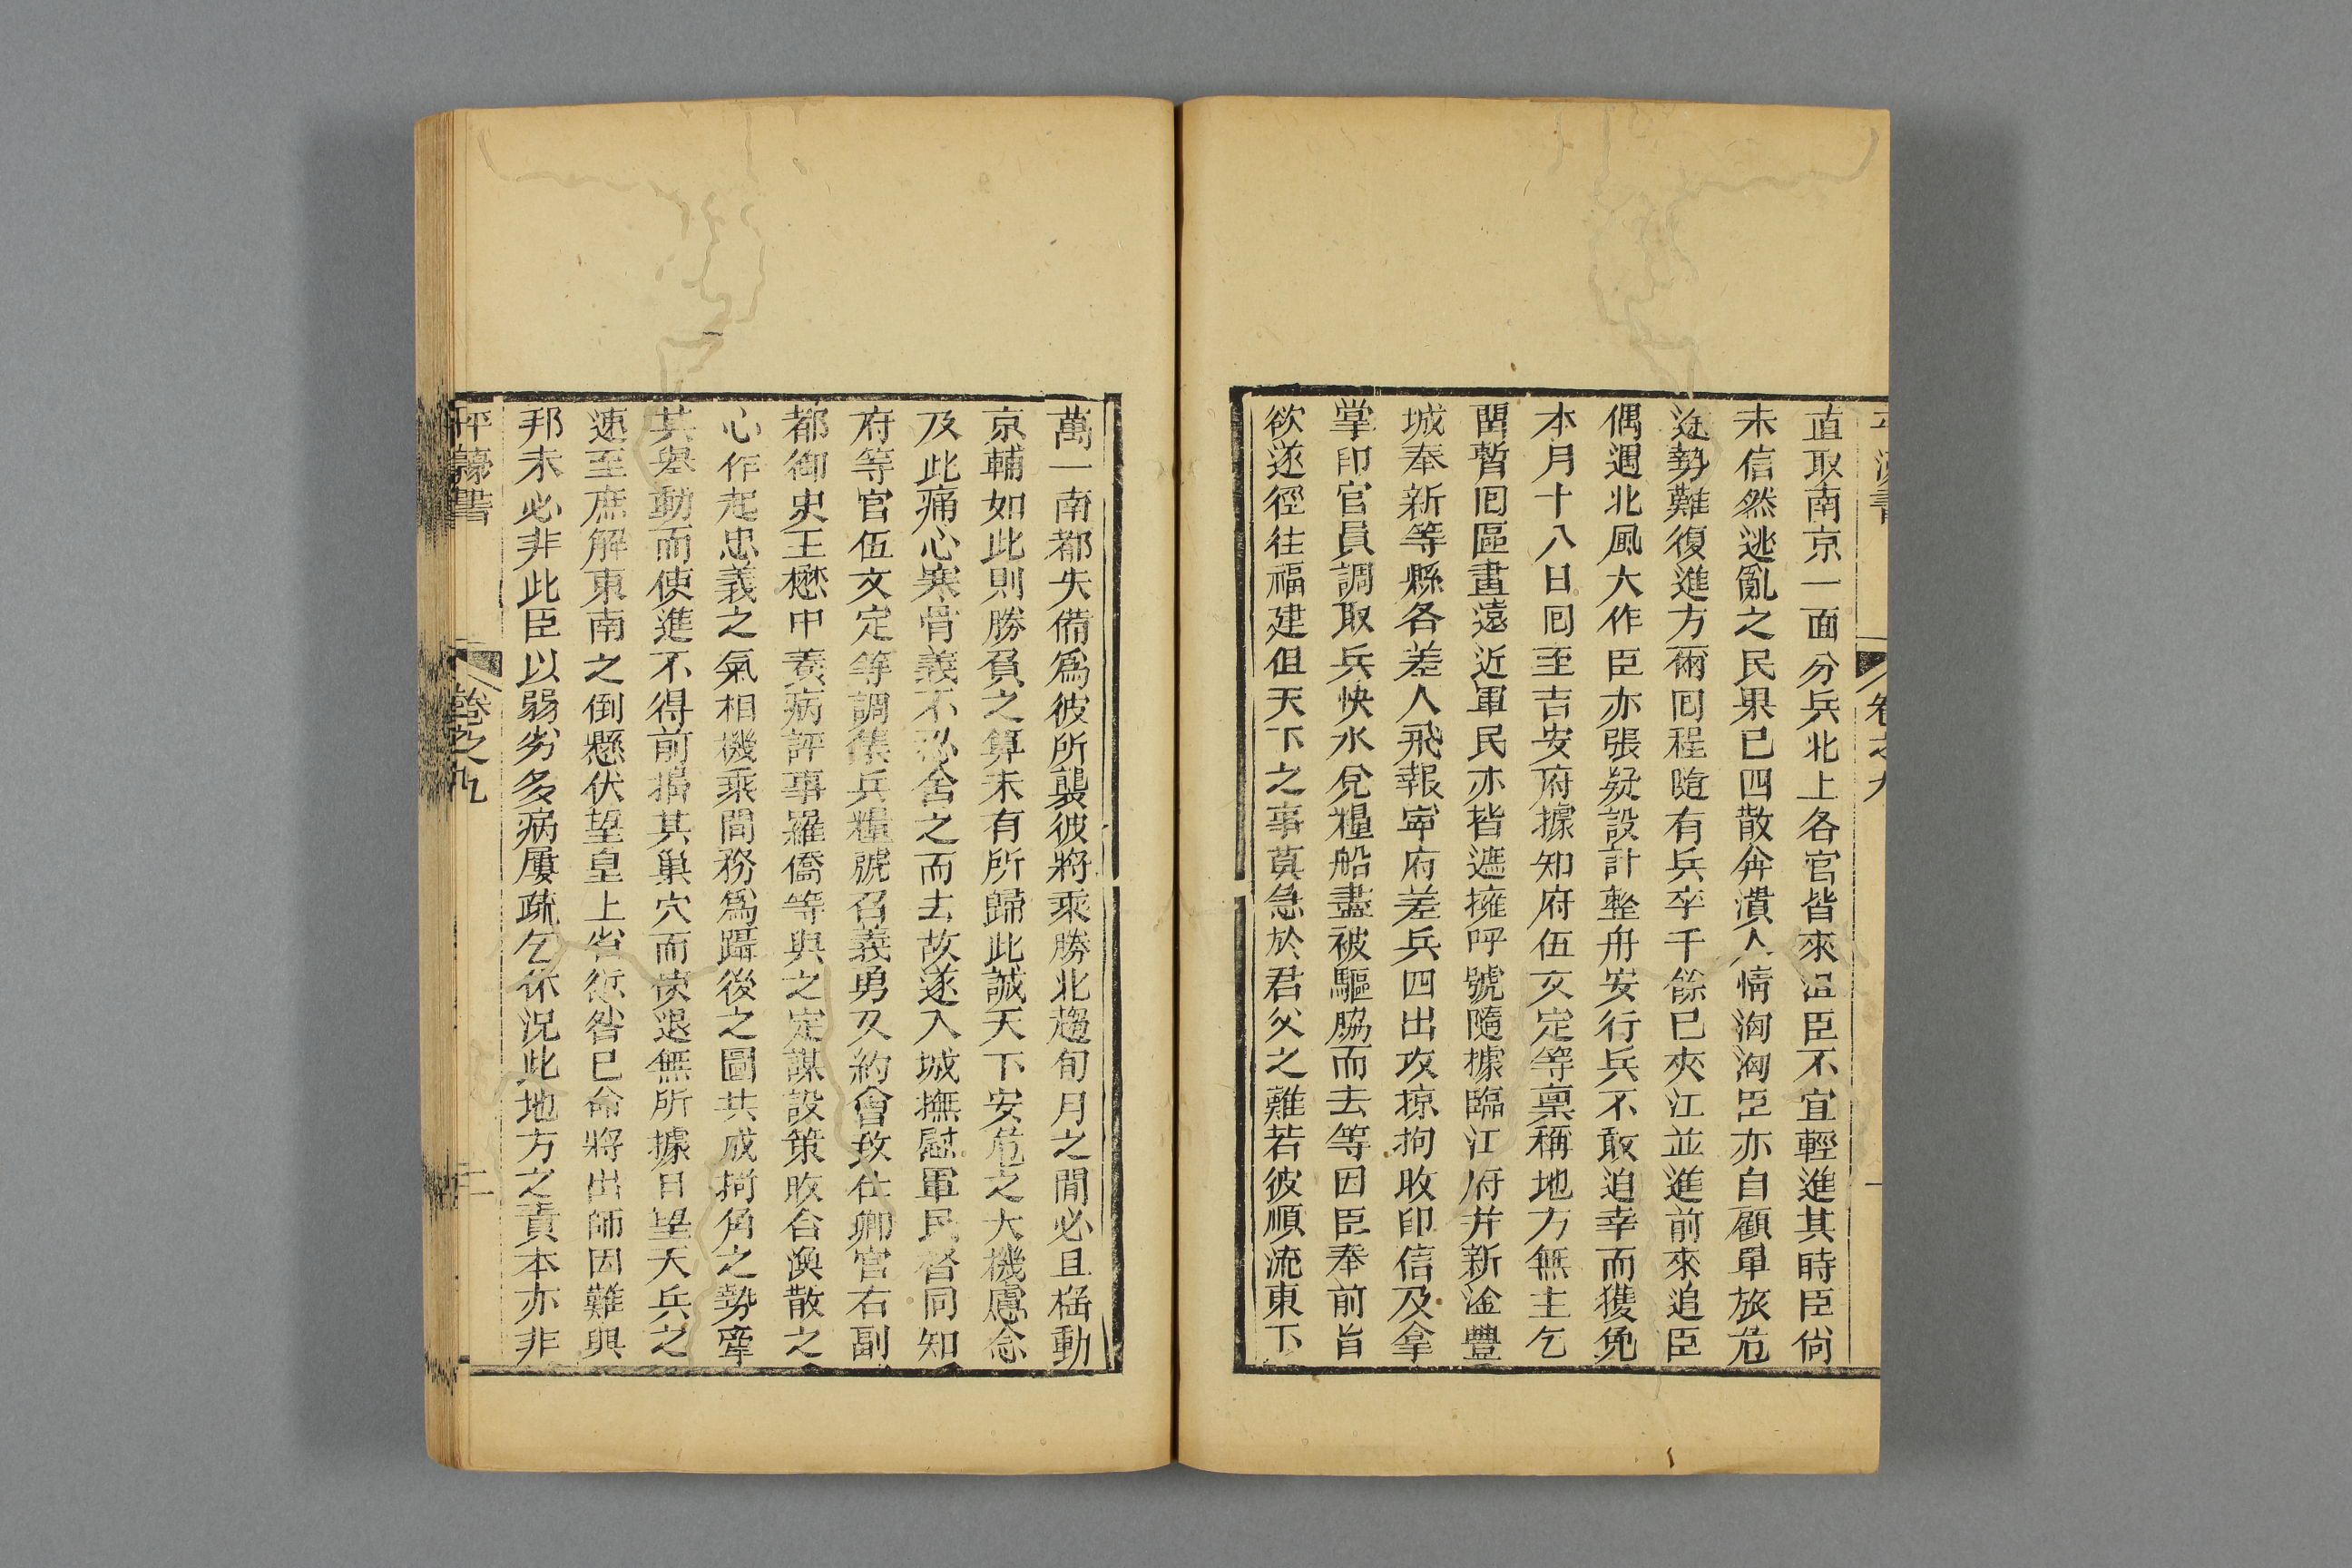 直取南京一面分兵北上各官皆來沮臣不宜輕進其時臣尙
未信然逃亂之民果已四散奔潰人情洶洶臣亦自顧單旅危
途勢難復進方爾囘程隨有兵卒千餘已夾江並進前來追臣
偶遇北風大作臣亦張疑設計整舟安行兵不敢迫幸而獲免
本月十八日囘至吉安府據知府伍文定等稟稱地方無主乞
留暫囘區畫遠近軍民亦皆遮擁呼號隨據臨江府并新淦豐
城奉新等縣各差人飛報寧府差兵四出攻掠拘收印信及拿
掌印官員調取兵快水兌糧船盡被驅脇而去等因臣奉前旨
欲遂徑往福建但天下之事莫急於君父之難若彼順流東下
萬一南都失備爲彼所襲彼將乘勝北趨旬月之間必且搖動
京輔如此則勝負之算未有所歸此誠天下安危之大機慮念
及此痛心寒骨義不忍舍之而去故遂入城撫慰軍民督同知
府等官伍文定等調集兵糧號召義勇又約會致仕鄉官右副
都御史王懋中養病評事羅僑等與之定謀設策收合渙散之
心作起忠義之氣相機乘間務爲躡後之圖共成掎角之勢牽
其舉動而使進不得前搗其巢穴而使退無所據日望天兵之
速至庶解東南之倒懸伏望皇上省愆咎已命將出師因難興
邦未必非此臣以弱劣多病屢疏乞休況此地方之責本亦非
平濠書　卷之九　二